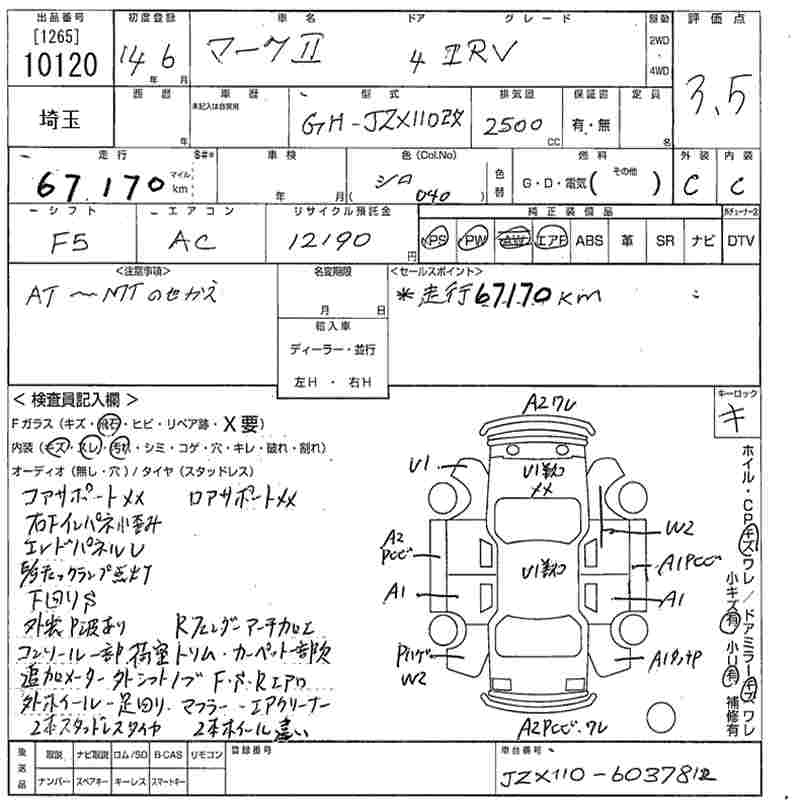 出品番号 初度登録 車名 ドア グレード 駆動 評価点
[1265]
10120 14 6 マークⅡ 4 IRV 2WD・4WD 3.5
年 月
埼玉 西暦 車歴 型式 排気量 保証書 定員
未記入は自家用
年 GH-JZX110改 2500 CC 有・無 名
走行 $#* 車検 色(Col.No) 色替 燃料 外装 内装
67.170 マイル km 年 月 シロ ( 040 ) G・D・電気( その他 ) C C
シフト エアコン リサイクル預託金 純正装備品
F5 AC 12190 円 PS PW AW エアB ABS 革 SR ナビ DTV
<注意事項> 名変期限 <セールスポイント>
AT〜MTのせかえ 月 日 *走行67170KM
輸入車
ディーラー・並行
左H・右H
<検査員記入欄> キーロック
キ
Fガラス(キズ・飛石・ヒビ・リペア跡・X要)
内装(キズ・スレ・汚れ・シミ・コゲ・穴・キレ・破れ・割れ)
オーディオ(無し・穴)/タイヤ(スタッドレス)
コアサポートメメ ロアサポートメメ
右下インパネ小歪み
エンドパネルU
チェックランプ点灯
下回りS
外装P波あり Rフェンダーアーチ加工
コンソール一部、荷室トリム・カーペット一部欠
追加メーター 外シフトノブ F・S・Rエアロ
外ホイール・足回り マフラー・エアクリーナー
2本スタッドレスタイヤ 2本ホイール違い
A2ワレ
U1
U1
XX
W2
A2
PCビ
A1PCビ
U1
A1
A1
Pハゲ
W2
A1タッチP
A2PCビ.ワレ
ホイル・CPキズワレ/ドアミラーキズワレ
小キズ有 小U有 補修有
後送品 取説 ナビ取説 ロム/SD B-CAS リモコン 登録番号 車台番号
ナンバー スペアキー キーレス スマートキー JZX110-6037812